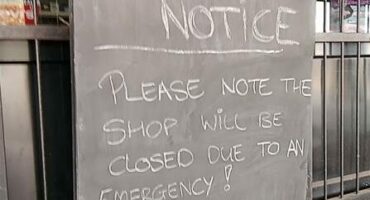 NOTICE
PLEASE NOTE THE
SHOP WILL BE
CLOSED DUE TO AN
EMERGENCY!